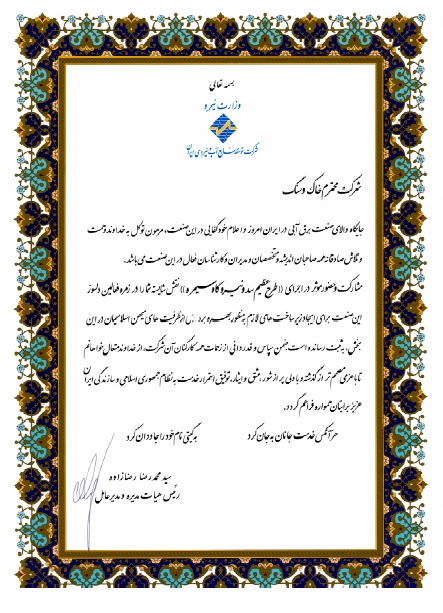 بسمه تعالی
وزارت نیرو
شرکت توسعه منابع آب و نیروی ایران
شرکت محترم خاک و سنگ
جایگاه والای صنعت برق آبی در ایران امروز و اعلام خودکفایی در این صنعت، مرهون توکل به خداوند و همت
و تلاش صادقانه همه صاحبان اندیشه و متخصصان و مدیران و کارشناسان فعال در این صنعت می باشد.
مشارکت و حضور موثر در اجرای ((طرح عظیم سد و نیروگاه سیمره)) نقش شایسته شما را در زمره فعالین دلسوز
این صنعت برای ایجاد زیرساخت های لازم بمنظور بهره برداری از ظرفیت های میهن اسلامیمان در این
بخش، به ثبت رسانده است. ضمن سپاس و قدردانی از زحمات همه کارکنان آن شرکت، از خداوند متعال خواهانم
تا با عزمی مصمم تر از گذشته و با دلی پر از شور، عشق و ایثار، توفیق استمرار خدمت به نظام جمهوری اسلامی و سازندگی ایران
عزیز برایتان همواره فراهم گردد.
هر آنکس خدمت جانان به جان کرد به گیتی نام خود را جاودان کرد
سید محمدرضا رضازاده
رئیس هیات مدیره و مدیرعامل